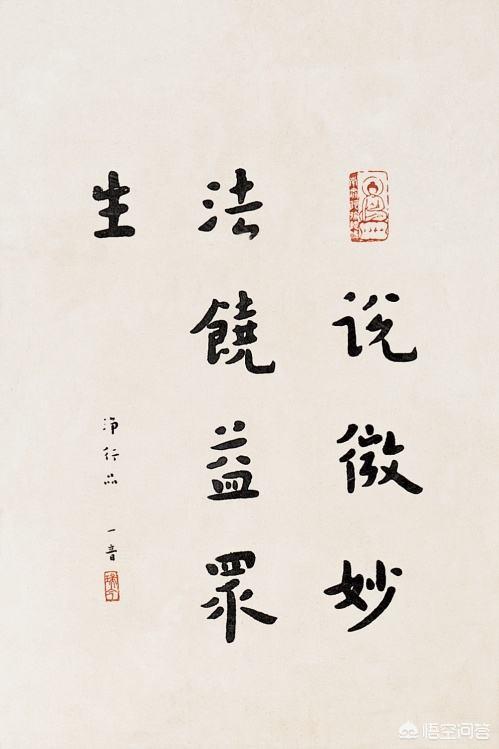 説微妙
法饒益眾
生
淨行品 一音
悟空问答